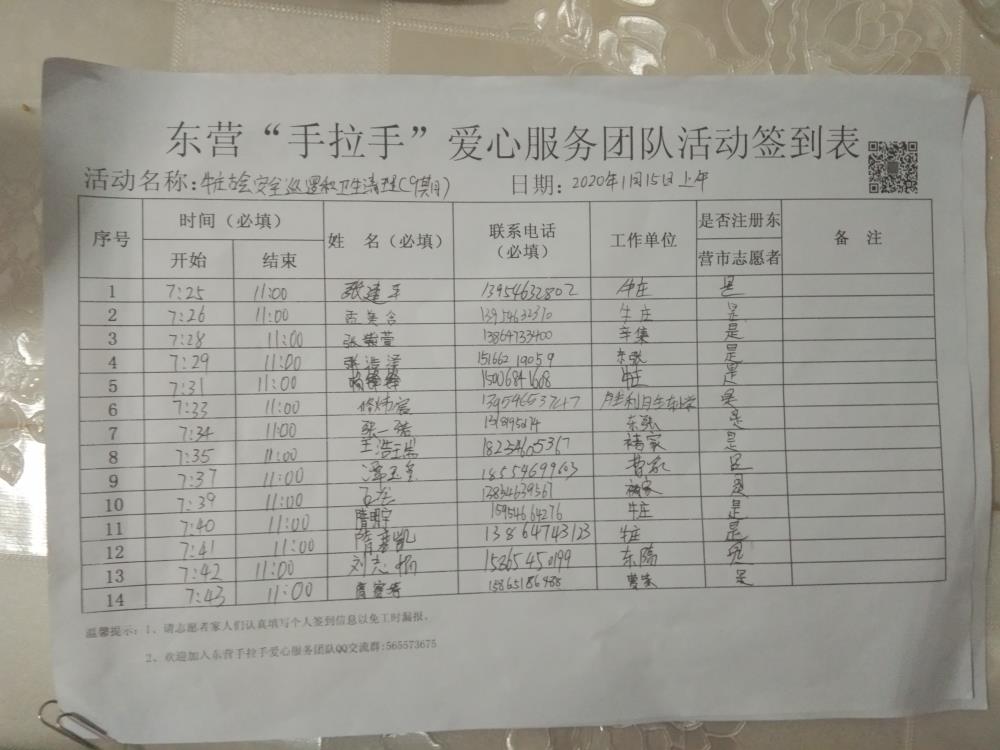 东营“手拉手”爱心服务团队活动签到表
活动名称:牛庄古会安全巡逻和卫生清理(9期) 日期: 2020年1月15日上午
序号 时间（必填） 姓 名（必填） 联系电话（必填） 工作单位 是否注册东营市志愿者 备 注
开始 结束
1 7:25 11:00 张建平 13954632802 牛庄 是
2 7:26 11:00 孟美合 13954632310 牛庄 是
3 7:28 11:00 张 13864733400 辛集 是
4 7:29 11:00 张浩泽 15166219059 东张 是
5 7:31 11:00 15006841668 牛庄 是
6 7:33 11:00 是
7 7:34 11:00 张一诺 是
8 7:35 11:00 王浩瑞 18234605367 褚家 是
9 7:37 11:00 18554699603 曹家 是
10 7:39 11:00 石龙 13854639567 是
11 7:40 11:00 隋明宇 15954664276 牛庄 是
12 7:41 11:00 隋 凯 13864743123 牛庄 是
13 7:42 11:00 刘志 15865450199 东隋 是
14 7:43 11:00 15865186488 是
温馨提示: 1、请志愿者家人们认真填写个人签到信息以免工时漏报。
2、欢迎加入东营手拉手爱心服务团队QQ交流群:565573675